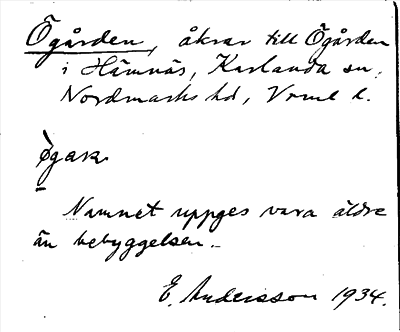 Ögården, åkrar till Ögården
i Hämnäs, Karlanda sn,
Nordmarks hd, Vrml l.
øgar
Namnet uppges vara äldre
än bebyggelsen.
E. Andersson 1934.